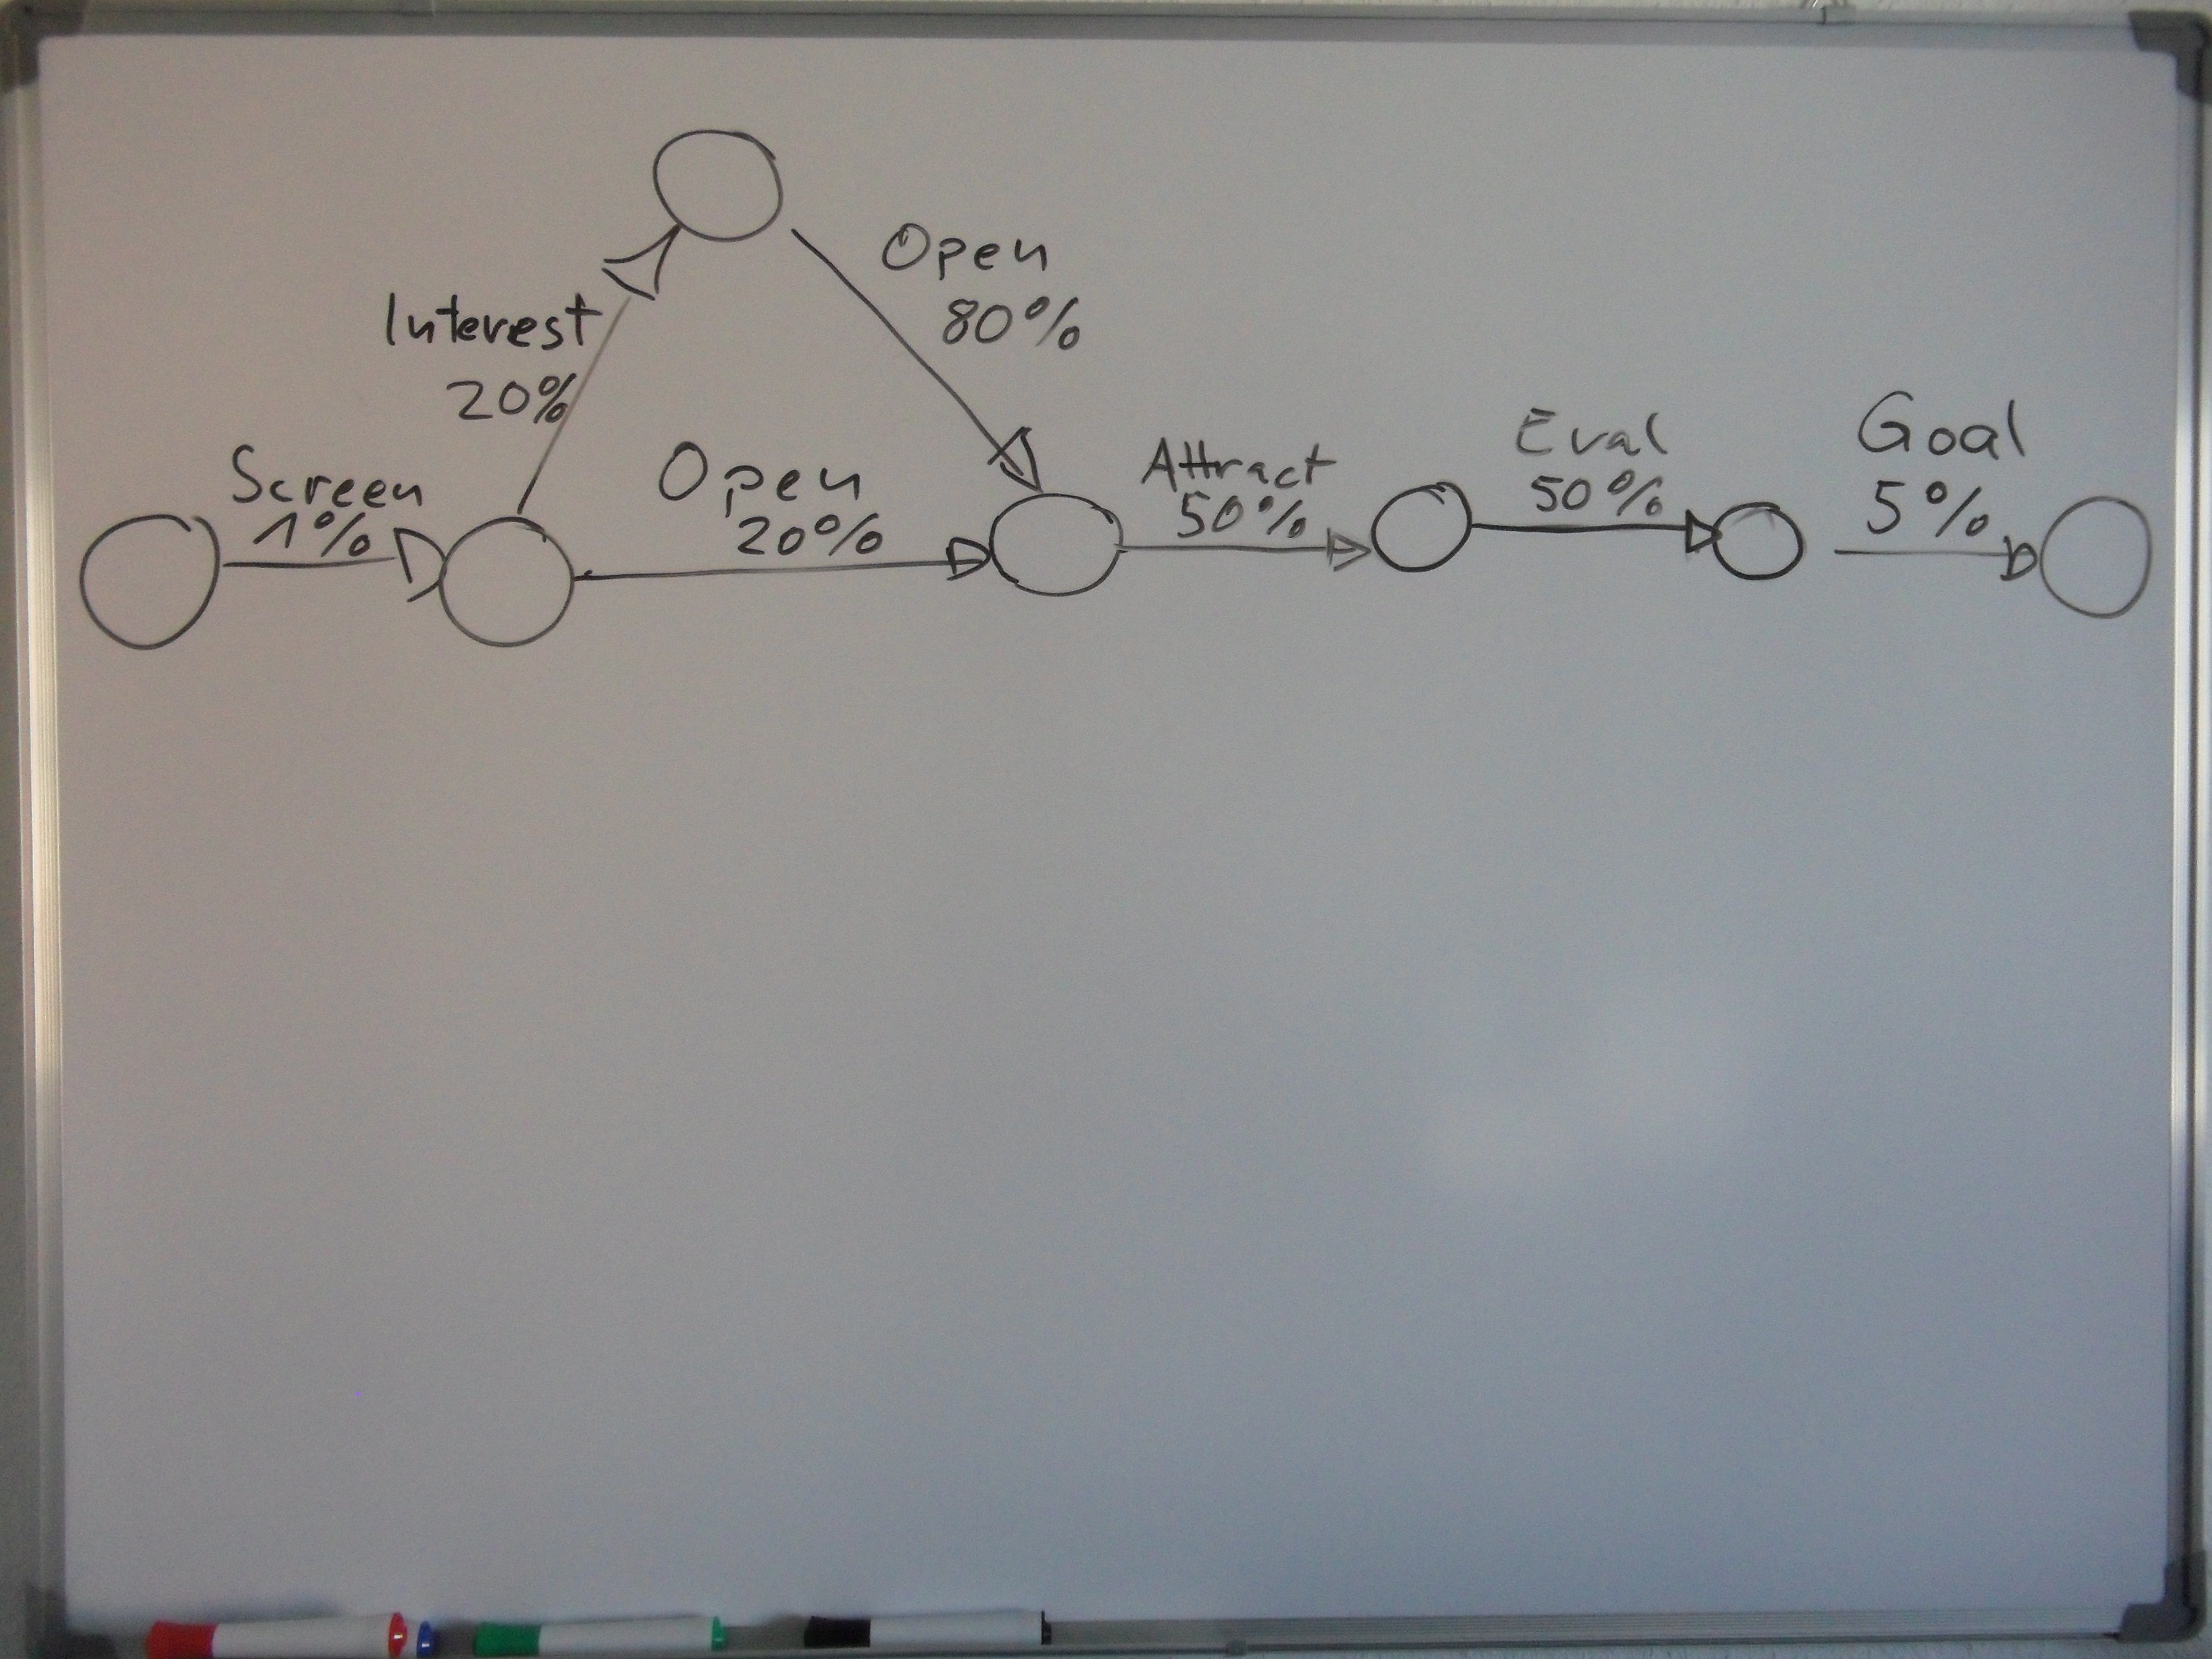 Open
80%
Interest
20%
Screen
1%
Open
20%
Attract
50%
Eval
50%
Goal
5%